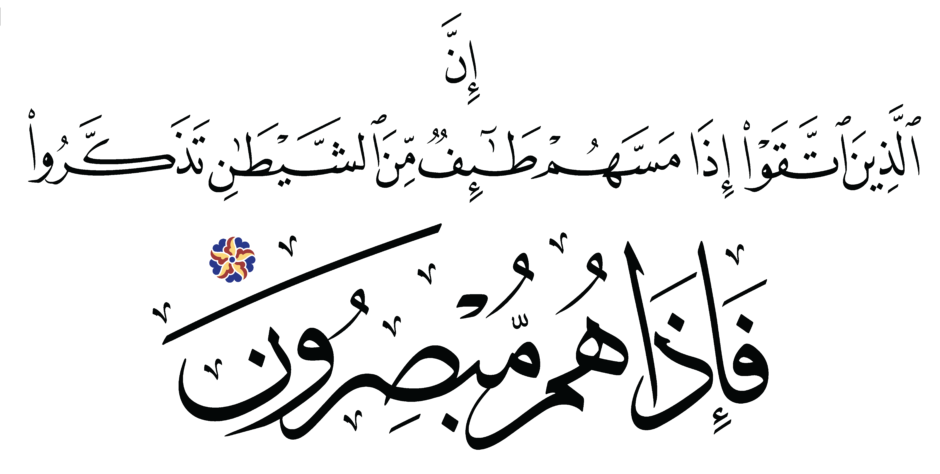 إِنَّ
ٱلَّذِينَ ٱتَّقَوْا۟ إِذَا مَسَّهُمْ طَـٰٓئِفٌ مِّنَ ٱلشَّيْطَـٰنِ تَذَكَّرُوا۟
فَإِذَا هُم مُّبْصِرُونَ